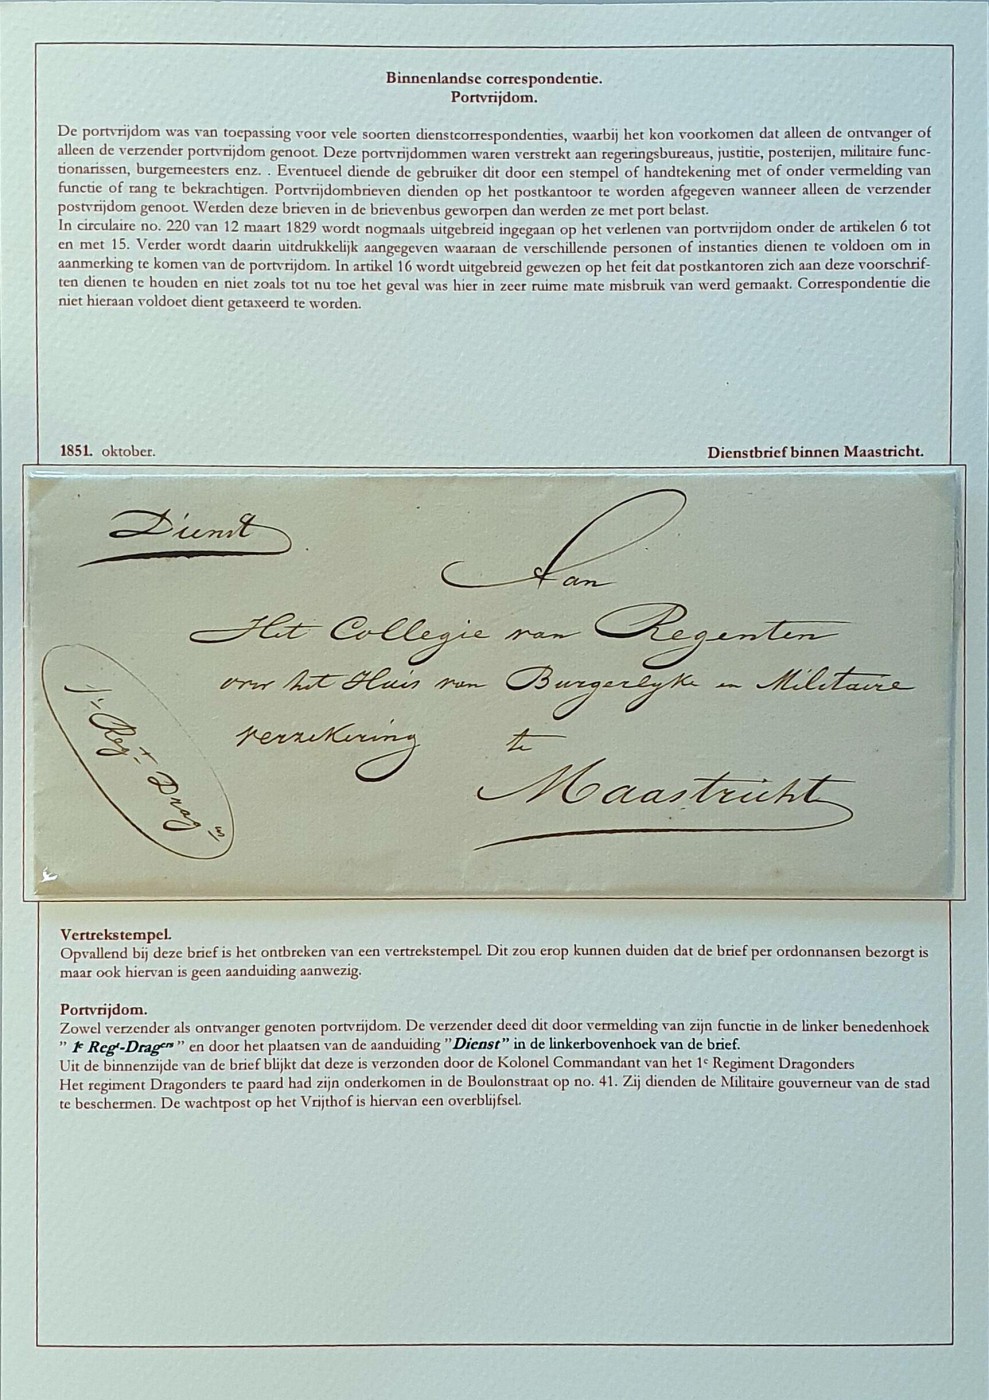 Binnenlandse correspondentie.
Portvrijdom.
De portvrijdom was van toepassing voor vele soorten dienstcorrespondenties, waarbij het kon voorkomen dat alleen de ontvanger of
alleen de verzender portvrijdom genoot. Deze portvrijdommen waren verstrekt aan regeringsbureaus, justitie, posterijen, militaire func-
tionarissen, burgemeesters enz. . Eventueel diende de gebruiker dit door een stempel of handtekening met of onder vermelding van
functie of rang te bekrachtigen. Portvrijdombrieven dienden op het postkantoor te worden afgegeven wanneer alleen de verzender
postvrijdom genoot. Werden deze brieven in de brievenbus geworpen dan werden ze met port belast.
In circulaire no. 220 van 12 maart 1829 wordt nogmaals uitgebreid ingegaan op het verlenen van portvrijdom onder de artikelen 6 tot
en met 15. Verder wordt daarin uitdrukkelijk aangegeven waaraan de verschillende personen of instanties dienen te voldoen om in
aanmerking te komen van de portvrijdom. In artikel 16 wordt uitgebreid gewezen op het feit dat postkantoren zich aan deze voorschrif-
ten dienen te houden en niet zoals tot nu toe het geval was hier in zeer ruime mate misbruik van werd gemaakt. Correspondentie die
niet hieraan voldoet dient getaxeerd te worden.
1851. oktober.
Dienstbrief binnen Maastricht.
Dienst
Aan
Het Collegie van Regenten
over het Huis van Burgerlyke en Militaire
verzekering te
Maastricht
1e Regt Dragns
Vertrekstempel.
Opvallend bij deze brief is het ontbreken van een vertrekstempel. Dit zou erop kunnen duiden dat de brief per ordonnansen bezorgt is
maar ook hiervan is geen aanduiding aanwezig.
Portvrijdom.
Zowel verzender als ontvanger genoten portvrijdom. De verzender deed dit door vermelding van zijn functie in de linker benedenhoek
" 1e Regt-Dragers " en door het plaatsen van de aanduiding "Dienst" in de linkerbovenhoek van de brief.
Uit de binnenzijde van de brief blijkt dat deze is verzonden door de Kolonel Commandant van het 1e Regiment Dragonders
Het regiment Dragonders te paard had zijn onderkomen in de Boulonstraat op no. 41. Zij dienden de Militaire gouverneur van de stad
te beschermen. De wachtpost op het Vrijthof is hiervan een overblijfsel.